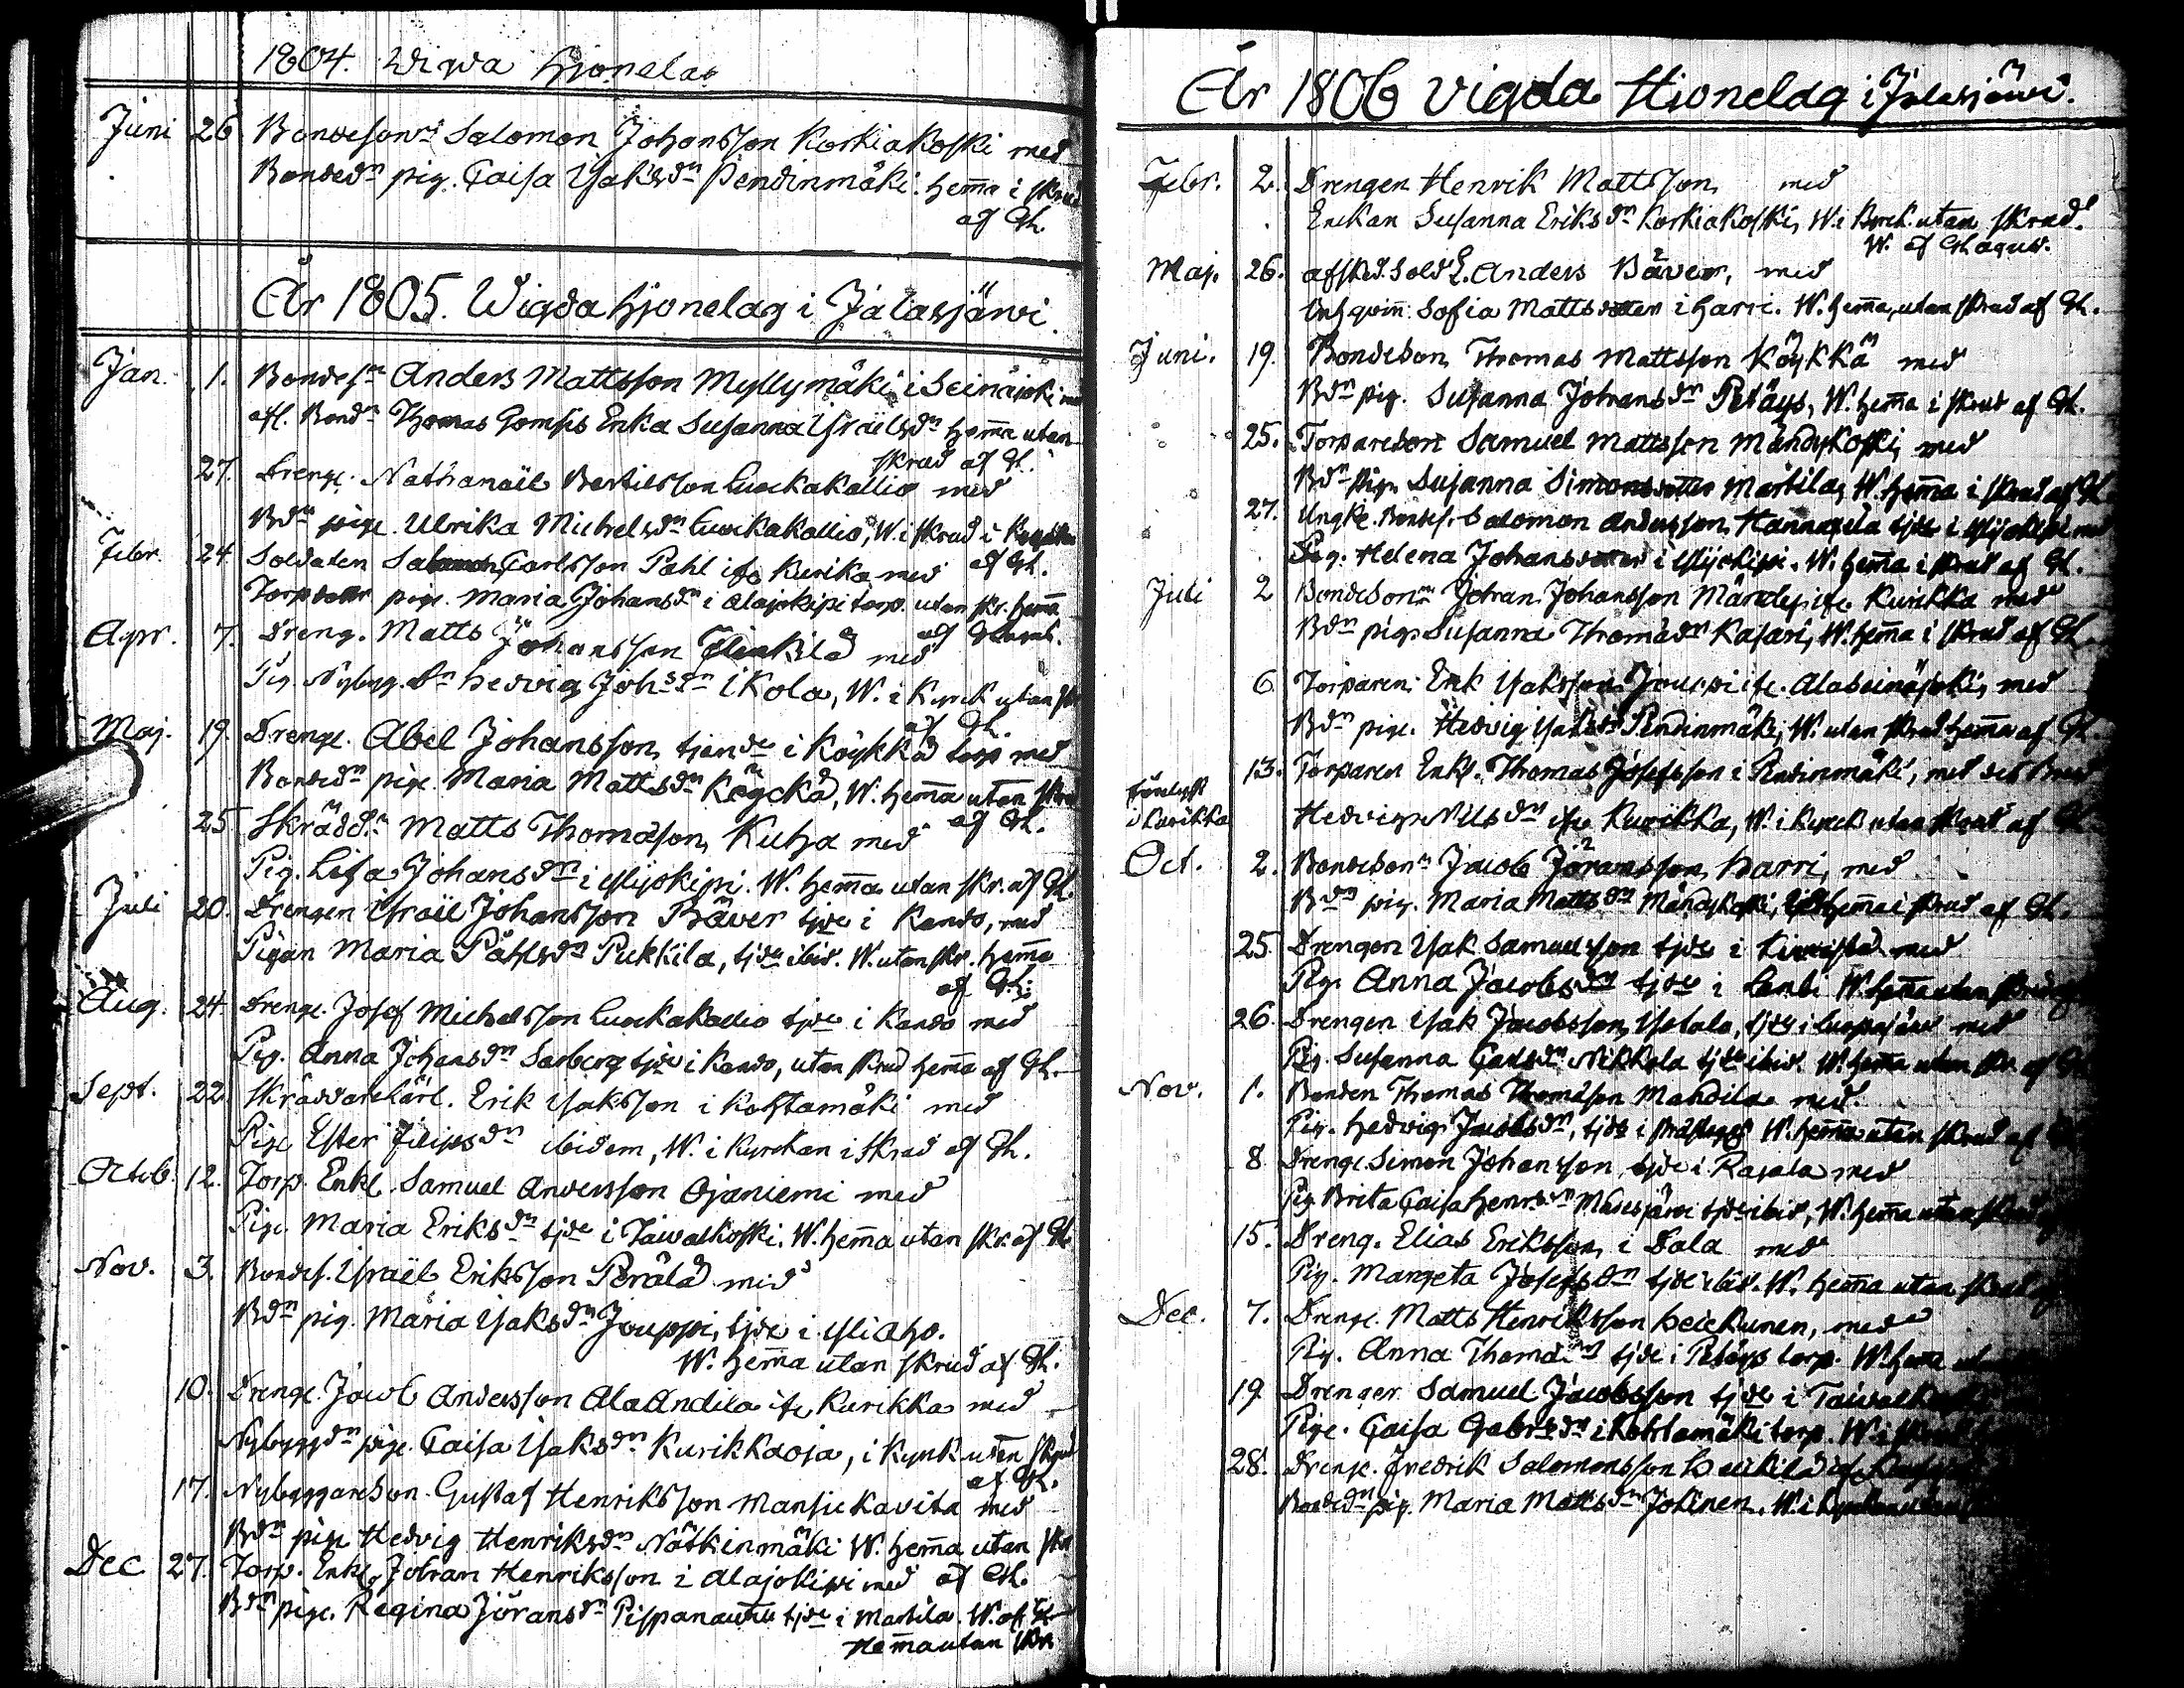 1804. Wigda Hjonelag
Juni 26 Bondeson Salomon Johansson Korkiakoski med
Bonded:n pig. Caisa Isaksd:n Pendinmäki. hemma i skrud
af Gh.
År 1805. Wigda hjonelag i Jalasjärvi.
Jan. 1. Bondes:n Anders Mattsson Myllymäki i Seinäjoki med
afl. Bond:n Thomas Gomsis Enka Susanna Israelsd:n hemma utan
skrud af Gh.
27. Drenge. Nathanaël Bertilsson Luockakallio med
Bd:n pige. Ulrika Michelsd:n Luockakallio, W. i skrud i
af Gh.
Febr. 24. Soldaten Carlsson Pahl ifr. Kurika med
Torp pige. Maria Johansd:n i Alajokipi torp. utan skr. hemma
af
Apr. 7. Dreng. Matts Johansson Flinkilä med
Pig. Nybygg. d:n Hedvig Joh:sd:n Ikola, W. i Kyrck utan skr
af Gh.
Maj. 19. Drenge. Abel Johansson tjande i Köykkä torp med
Bonded:n pige. Maria Mattsd:n Köyckä, W. hemma utan skrud
af Gh.
25 Skrädd:n Matts Thomasson Kuha med
Pig. Lisa Johansd:n i Ylijokipi. W. hemma utan skr. af Gh.
Juli 20. Drengen Israël Johansson Bäver tjde i Kando, med
Pigan Maria Påhlsd:n Pukkila, tjde ibid. W. utan skr. hemma
af Gh.
Aug. 24. Drenge. Josef Michelsson Luockakallio tjde i Kando med
Pig. Anna Johansd:n Sarberg tjde i Kando, utan skrud hemma af Gh.
Sept. 22. Skräddarekärl. Erik Isaksson i Kohtamäki med
Pige Ester Filipsd:n ibidem, W. i Kyrckan i skrud af Gh.
Octob. 12. Torp. Enkl. Samuel Andersson Ojaniemi med
Pige. Maria Eriksd:n tjde i Taivalkoski. W. hemma utan skr. af Gh.
Nov. 3. Bondes. Israël Eriksson Perälä med
Bd:n pig. Maria Isaksd:n Jouppi, tjde i Yliaho.
W. hemma utan skrud af Gh.
10. Drenge. Jacob Andersson AlaAndila ifr. Kurikka med
Nybyggd:n pige. Caisa Isaksd:n Kurikkaoja, i Kyrck utan skrud
af Gh.
17. Nybyggareson Gustaf Henriksson Mansickavita med
Bd:n pige Hedvig Henriksd:n Nätkinmäki W. hemma utan skr
Dec 27. Torp. Enkl. Johan Henriksson i Alajokipi med af Gh.
Bd:n pige. Regina Göransd:n tjde i Martila. W. af Gh
hemma utan skr
År 1806 vigda Hionelag i Jalasjärvi.
Febr. 2. Drengen Henrik Mattsson med
Enckan Susanna Eriksd:n Korkiakoski, W. i Kyrck. utan skrud.
W. af Gh
Maj. 26. afsked. Sold. Anders Bäver, med
Sofia Mattsdotter i Harri. W. hemma, utan skrud af Gh.
Juni. 19. Bondeson Thomas Mattsson Köykkä med
Bd:n pig. Susanna Johansd:n Petäys, W. hemma i skrud af Gh.
25. Torpareson Samuel Mattsson Mändykoski med
Bd:n pige Susanna Simonsdotter Martila, W. hemma i skrud af Gh
27. Ungk. Bondes. Salomon Andersson Hannuxela tjde i Ylijokipi med
Pig. Helena Johansdotter i Ylijokipi. W. hemma i skrud af Gh.
Juli 2 Bondeson Johan Johansson Mändy ifr. Kurikka med
Bd:n pige Susanna Thomasd:n Kasari, W. hemma i skrud af Gh.
6 Torparen Erik Isaksson Jouppi ifr. Alaseinäjoki, med
Bd:n pige. Hedvig Isaksd:n Pendinmäki, W. utan skrud hemma af Gh.
13. Torparen Enkl. Thomas Josefsson i Pendinmäki, med
i Kurikka Hedvig Nilsd:n ifr. Kurikka, W. i Kyrck utan skrud af Gh
Oct. 2. Bondeson Jacob Göransson Harri, med
Bd:n pig. Maria Mattsd:n Mändykoski, hemma i skrud af Gh.
25. Drengen Isak Samuelsson tjde i med
Pig. Anna Jacobsd:n tjde i W. hemma utan skrud
26. Drengen Isak Jacobsson Ysotalo, tjde i Luopajärvi med
Pig. Susanna Carlsd:n Nikkola tjde ibid. W. hemma utan skr. af Gh
Nov. 1. Bonden Thomas Thomasson Mahdila med
Pig. Hedvig Jacobsd:n, tjde i W. hemma utan skrud af
8 Drenge Simon Johansson tjde i Rajala med
Pig Brita Caisa Henr:sd:n tjde ibid, W. hemma utan skrud
15. Dreng. Elias Eriksson i Dala med
Pig. Margeta Josefsd:n tjde ibid. W. hemma utan skrud
Dec. 7. Drenge. Matts Henriksson Heickunen, med
Pig. Anna Thomasd:n tjde i Petäys torp. W. hemma
19 Drengen Samuel Jacobsson tjde i
Pige. Caisa Gabr:sd:n i Kohtamäki torp. W. i
28. Drenge. Fredrik Salomonsson
Bonded:n pig. Maria Mattsd:n Jokinen. W. i